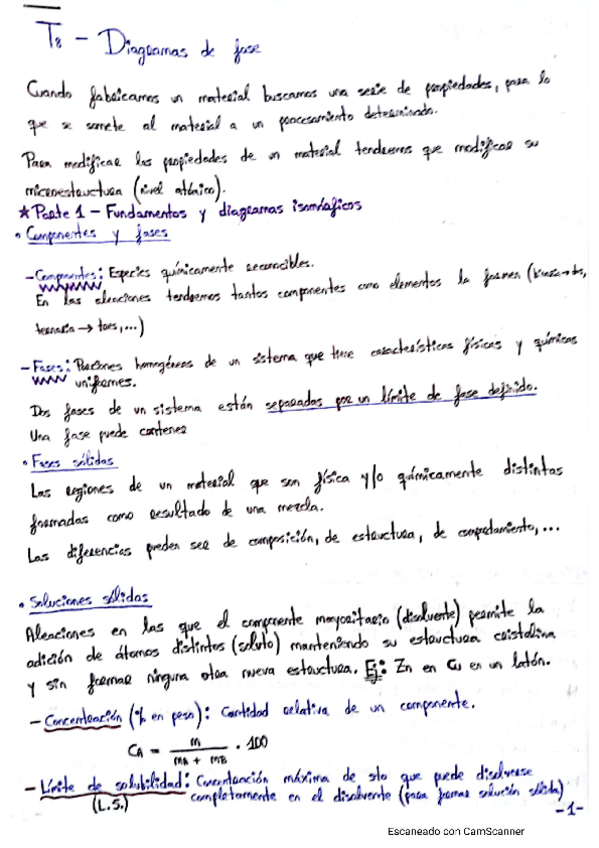 T8 - Diagramas de fase
Cuando fabricamos un material buscamos una serie de propiedades, para lo
que se somete al material a un procesamiento determinado.
Para modificar las propiedades de un material tendremos que modificar su
microestructura (nivel atómico).
★ Parte 1 - Fundamentos y diagramas isomórficos
• Componentes y fases
- Componentes: Especies químicamente reconocibles.
En las aleaciones tendremos tantos componentes como elementos la formen (binaria → dos,
ternaria → tres,...)
- Fases: Porciones homogéneas de un sistema que tiene características físicas y químicas
uniformes.
Dos fases de un sistema están separadas por un límite de fase definido.
Una fase puede contener
• Fases sólidas
Las regiones de un material que son física y/o químicamente distintas
formadas como resultado de una mezcla.
Las diferencias pueden ser de composición, de estructura, de comportamiento,...
• Soluciones sólidas
Aleaciones en las que el componente mayoritario (disolvente) permite la
adición de átomos distintos (soluto) manteniendo su estructura cristalina
y sin formar ninguna otra nueva estructura. Ej: Zn en Cu en un latón.
- Concentración (% en peso): Cantidad relativa de un componente.
CA = m / (mA + mB) · 100
- Límite de solubilidad: Concentración máxima de sto que puede disolverse
(L.S.) completamente en el disolvente (para formar solución sólida)
-1-
Escaneado con CamScanner